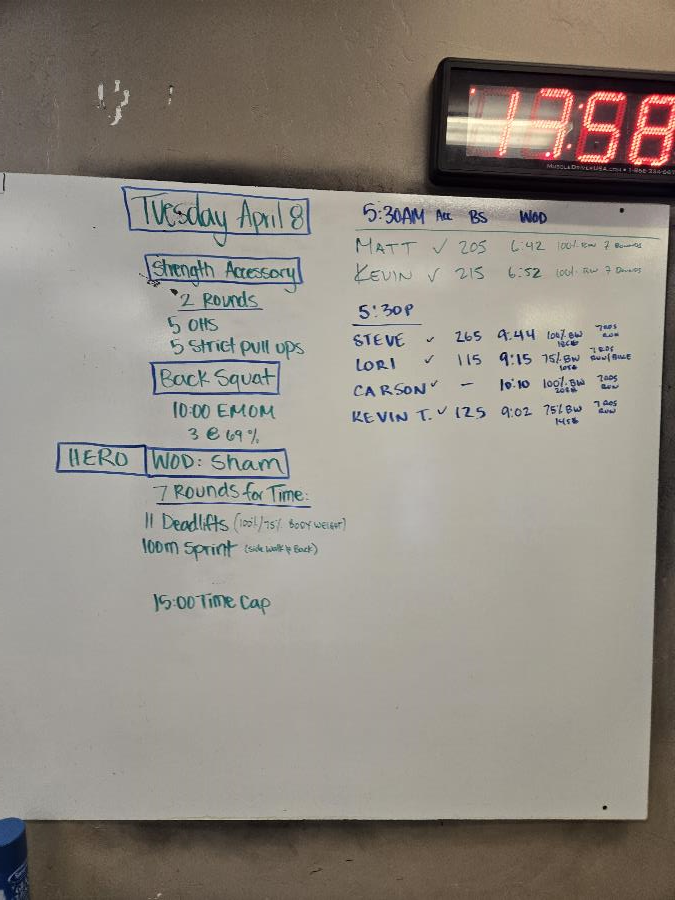 13:58
MuscleDriverUSA.com • 1-866-
Tuesday April 8
Strength Accessory
2 Rounds
5 OHS
5 Strict pull ups
Back Squat
10:00 EMOM
3 @ 69%
HERO WOD: Sham
7 Rounds for Time:
11 Deadlifts (100%/75% BODY WEIGHT)
100m Sprint (side walk & Back)
15:00 Time Cap
5:30AM Acc BS WOD
MATT ✓ 205 6:42 100% 7 Rounds
KEVIN ✓ 215 6:52 100% 7 Rounds
5:30P
STEVE ✓ 265 9:44 100% BW 7 RDS RUN
LORI ✓ 115 9:15 75% BW 105# 7 RDS RUN/BIKE
CARSON ✓ – 10:10 100% BW 205# 7 RDS RUN
KEVIN T. ✓ 125 9:02 75% BW 145# 7 RDS RUN